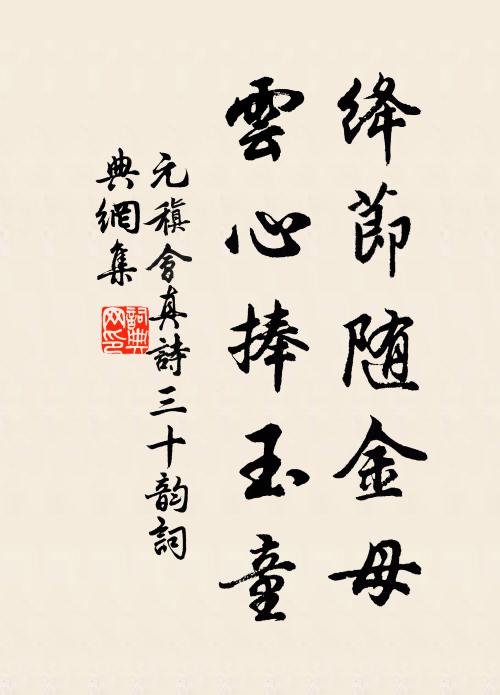 绛節随金母
雲心捧玉童
元稹會真詩三十韵詞
典網集
詞典
网印